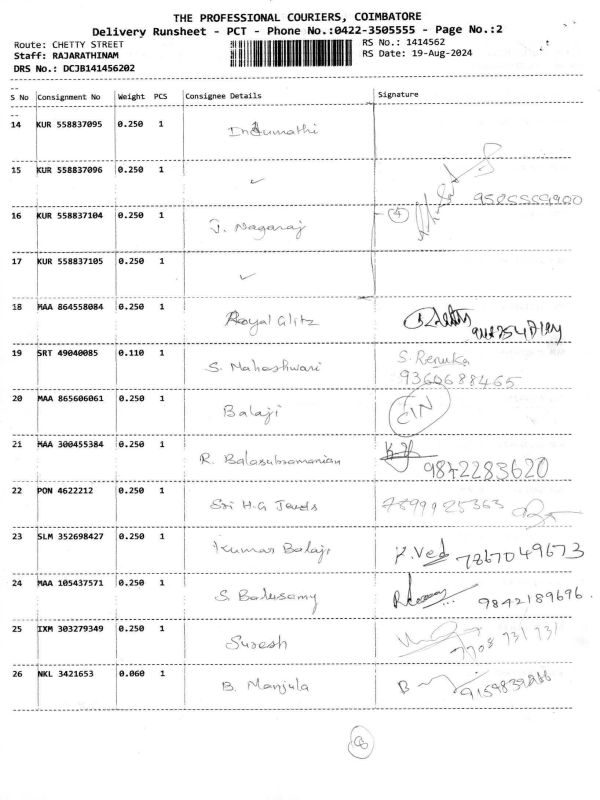 THE PROFESSIONAL COURIERS, COIMBATORE
Delivery Runsheet - PCT - Phone No.:0422-3505555 - Page No.:2
Route: CHETTY STREET RS No.: 1414562
Staff: RAJARATHINAM RS Date: 19-Aug-2024
DRS No.: DCJB141456202
S No Consignment No Weight PCS Consignee Details Signature
14 KUR 558837095 0.250 1 Indumathi
15 KUR 558837096 0.250 1 ✓
16 KUR 558837104 0.250 1 J. Nagaraj 4
17 KUR 558837105 0.250 1 ✓
18 MAA 864558084 0.250 1 Royal Glitz
19 SRT 49040085 0.110 1 S. Maheshwari S. Renuka
9360688465
20 MAA 865606061 0.250 1 Balaji
21 MAA 300455384 0.250 1 R. Balasubramanian 9842283620
22 PON 4622212 0.250 1 Sri H.G Jewels 7899925363
23 SLM 352698427 0.250 1 Kumar Balaji P. Ved 7867049673
24 MAA 105437571 0.250 1 S. Balusamy 9842189696.
25 IXM 303279349 0.250 1 Suresh 7708 731 731
26 NKL 3421653 0.060 1 B. Manjula